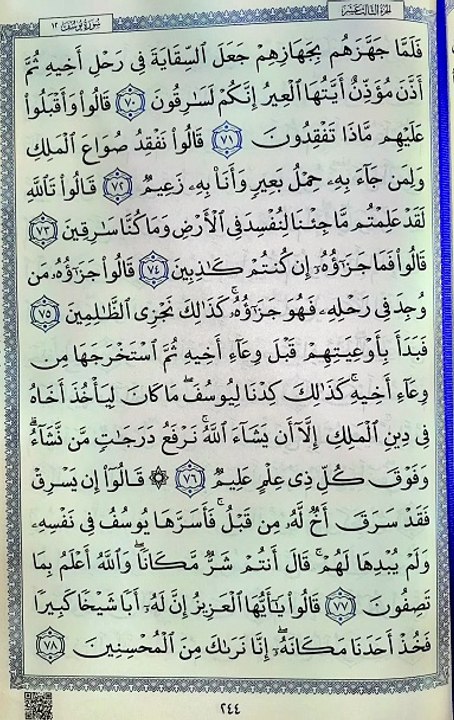 سُورَةُ يُوسُفَ ١٢
الجُزْءُ الثَّالِثَ عَشَرَ
فَلَمَّا جَهَّزَهُم بِجَهَازِهِمْ جَعَلَ ٱلسِّقَايَةَ فِى رَحْلِ أَخِيهِ ثُمَّ
أَذَّنَ مُؤَذِّنٌ أَيَّتُهَا ٱلْعِيرُ إِنَّكُمْ لَسَـٰرِقُونَ ٧٠ قَالُوا۟ وَأَقْبَلُوا۟
عَلَيْهِم مَّاذَا تَفْقِدُونَ ٧١ قَالُوا۟ نَفْقِدُ صُوَاعَ ٱلْمَلِكِ
وَلِمَن جَآءَ بِهِۦ حِمْلُ بَعِيرٍ وَأَنَا۠ بِهِۦ زَعِيمٌ ٧٢ قَالُوا۟ تَٱللَّهِ
لَقَدْ عَلِمْتُم مَّا جِئْنَا لِنُفْسِدَ فِى ٱلْأَرْضِ وَمَا كُنَّا سَـٰرِقِينَ ٧٣
قَالُوا۟ فَمَا جَزَٰٓؤُهُۥٓ إِن كُنتُمْ كَـٰذِبِينَ ٧٤ قَالُوا۟ جَزَٰٓؤُهُۥ مَن
وُجِدَ فِى رَحْلِهِۦ فَهُوَ جَزَٰٓؤُهُۥ ۚ كَذَٰلِكَ نَجْزِى ٱلظَّـٰلِمِينَ ٧٥
فَبَدَأَ بِأَوْعِيَتِهِمْ قَبْلَ وِعَآءِ أَخِيهِ ثُمَّ ٱسْتَخْرَجَهَا مِن
وِعَآءِ أَخِيهِ ۚ كَذَٰلِكَ كِدْنَا لِيُوسُفَ ۖ مَا كَانَ لِيَأْخُذَ أَخَاهُ
فِى دِينِ ٱلْمَلِكِ إِلَّآ أَن يَشَآءَ ٱللَّهُ ۚ نَرْفَعُ دَرَجَـٰتٍ مَّن نَّشَآءُ ۗ
وَفَوْقَ كُلِّ ذِى عِلْمٍ عَلِيمٌ ٧٦ ۞ قَالُوٓا۟ إِن يَسْرِقْ
فَقَدْ سَرَقَ أَخٌ لَّهُۥ مِن قَبْلُ ۚ فَأَسَرَّهَا يُوسُفُ فِى نَفْسِهِۦ
وَلَمْ يُبْدِهَا لَهُمْ ۚ قَالَ أَنتُمْ شَرٌّ مَّكَانًا ۖ وَٱللَّهُ أَعْلَمُ بِمَا
تَصِفُونَ ٧٧ قَالُوا۟ يَـٰٓأَيُّهَا ٱلْعَزِيزُ إِنَّ لَهُۥٓ أَبًا شَيْخًا كَبِيرًا
فَخُذْ أَحَدَنَا مَكَانَهُۥٓ ۖ إِنَّا نَرَىٰكَ مِنَ ٱلْمُحْسِنِينَ ٧٨
٢٤٤